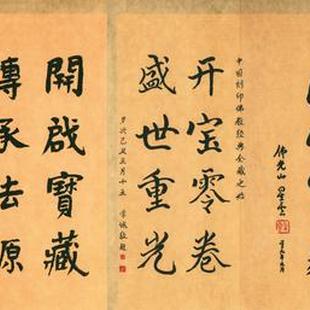 佛光山 星雲
中国刻印佛教经典全藏之始
开宝零卷
盛世重光
岁次己丑五月十五 学诚敬题
開啟寶藏
傳承法源